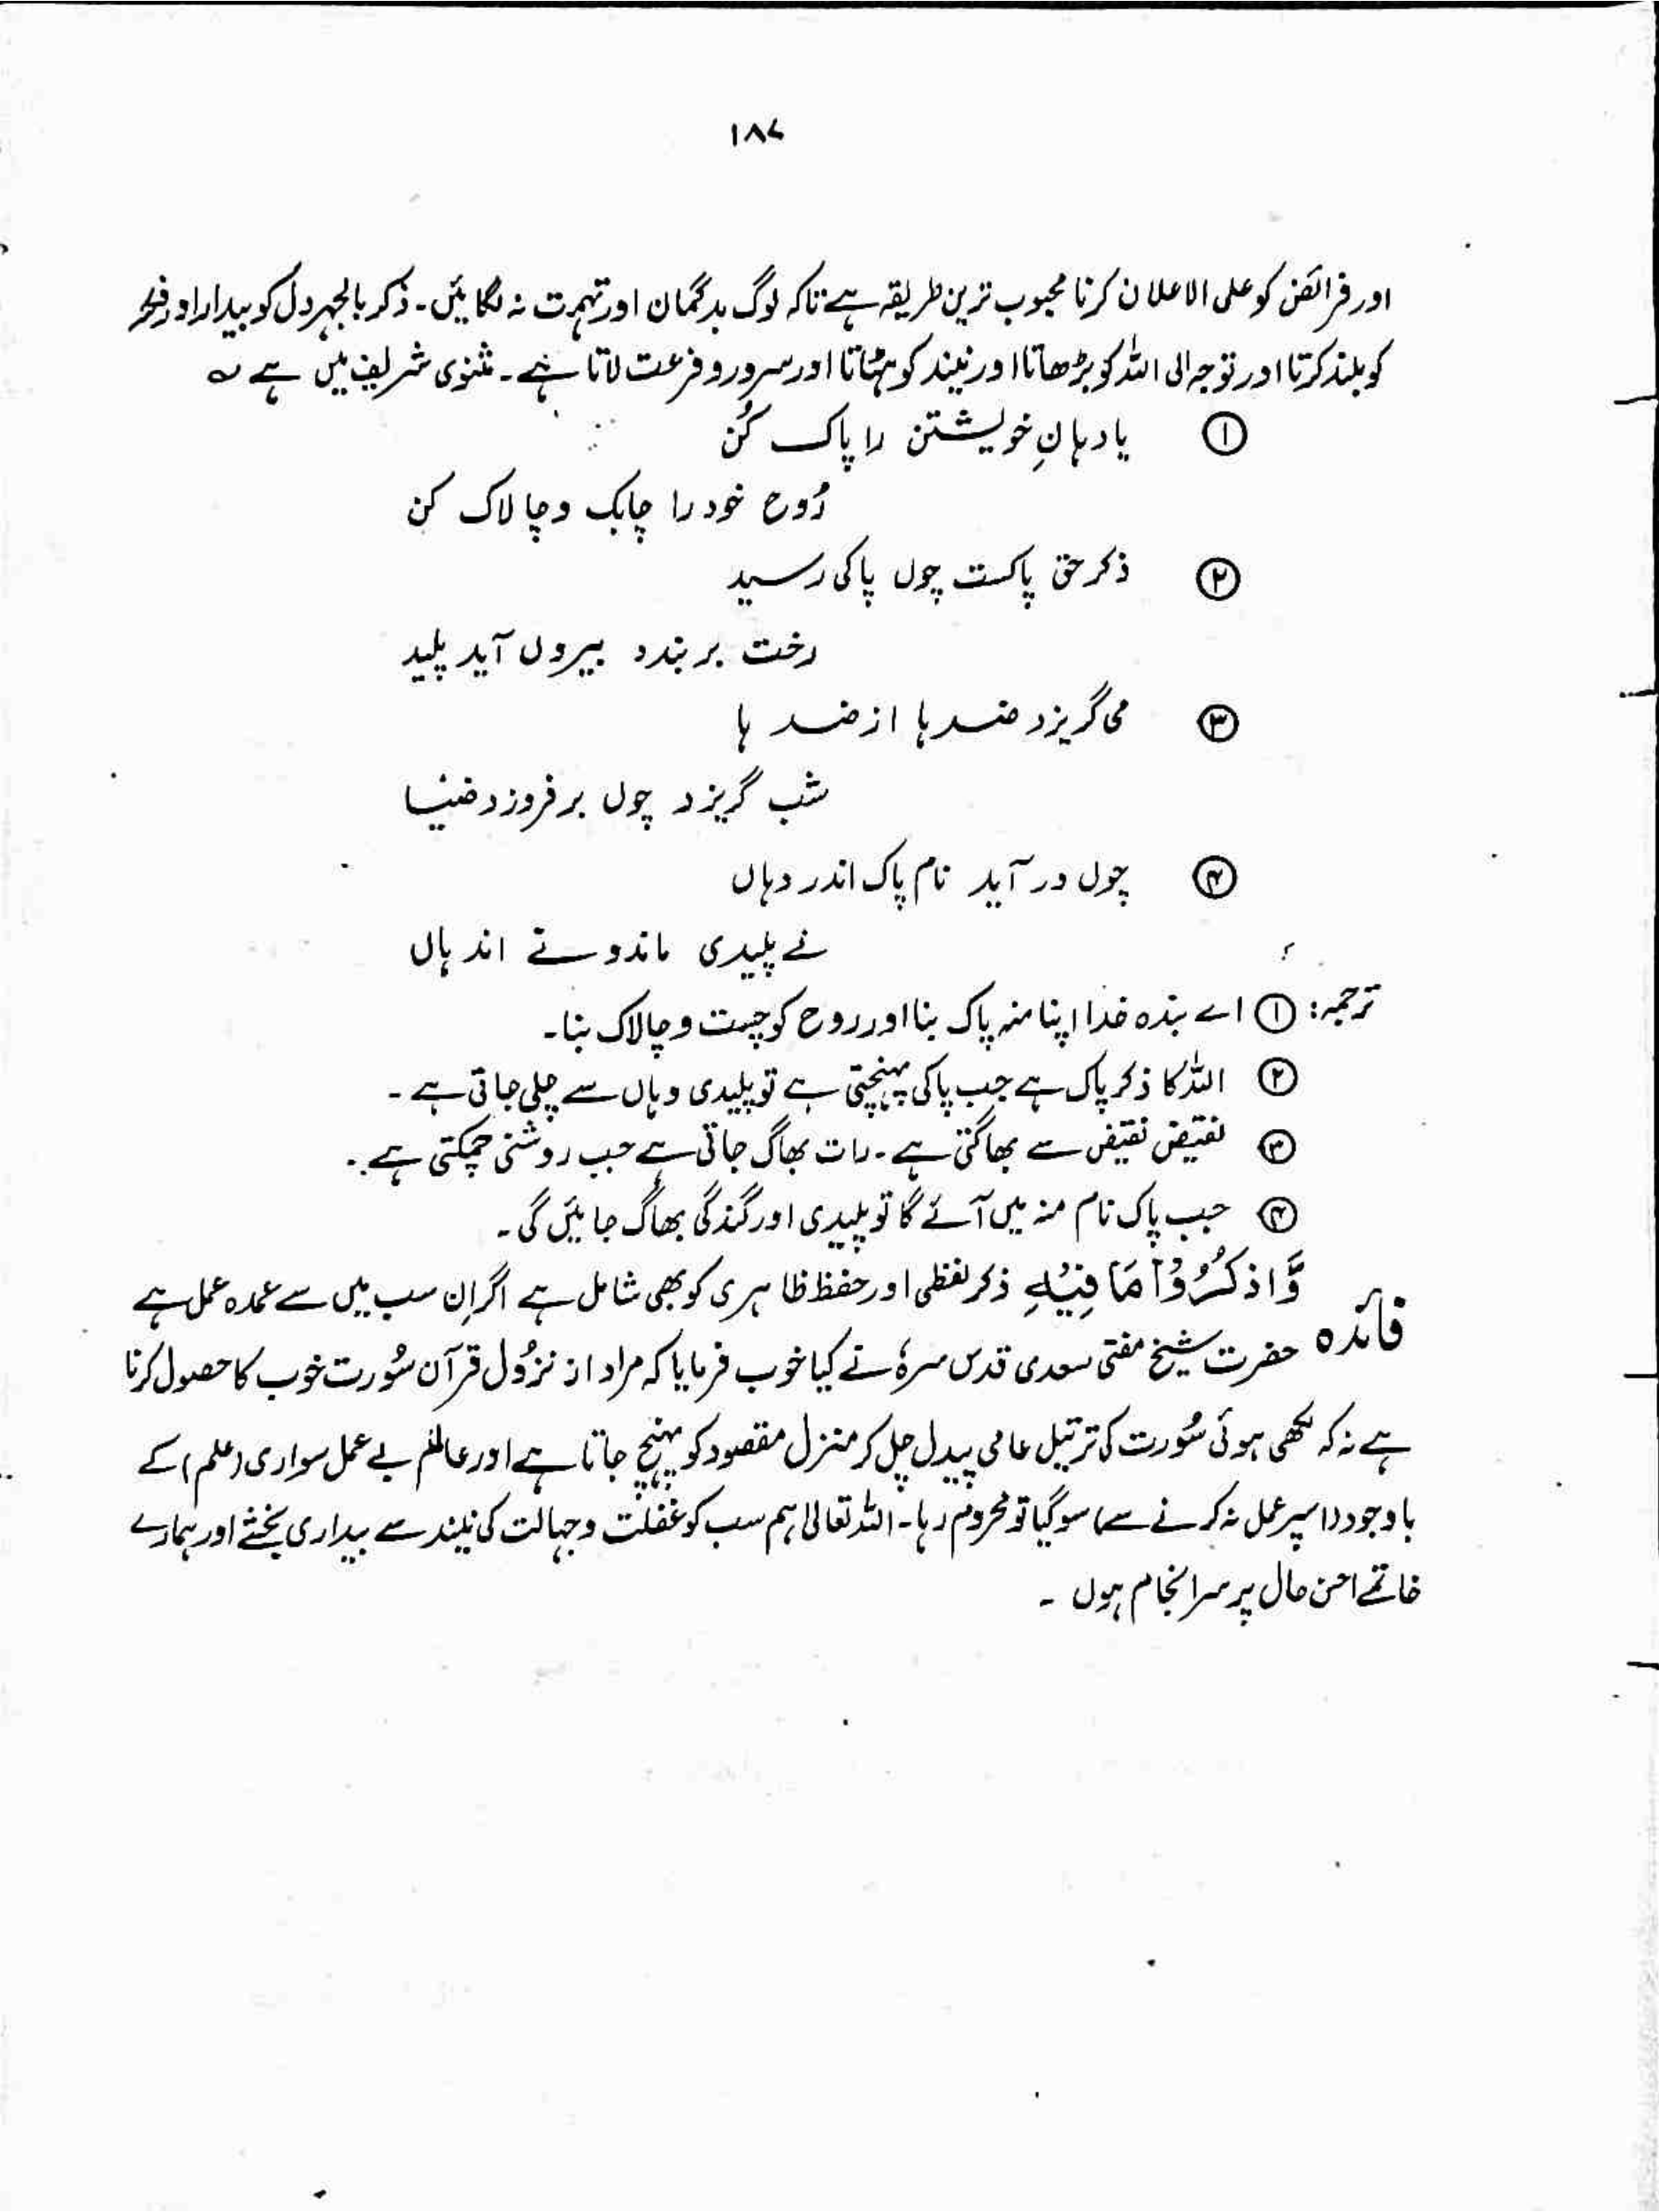 ۱۸۷
اور فرائض کو علی الاعلان کرنا محبوب ترین طریقہ ہے تاکہ لوگ بدگمان اور تہمت نہ لگائیں۔ ذکر بالجہر دل کو بیدار اور فکر
کو بلند کرتا اور توجہ الی اللہ کو بڑھاتا اور نیند کو ہٹاتا اور سرور و فرحت لاتا ہے۔ مثنوی شریف میں ہے ؎
① یا دہانِ خویشتن را پاک کُن
رُوح خود را چابک و چالاک کن
② ذکر حق پاکست چوں پاکی رسید
رخت بر بندد بیروں آید پلید
③ می گریزد ضد ہا از ضد ہا
شب گریزد چوں بر فروزد ضیا
④ چوں در آید نام پاک اندر دہاں
نے پلیدی ماند و نے اند ہاں
ترجمہ: ① اے بندہ خدا اپنا منہ پاک بنا اور روح کو چست و چالاک بنا۔
② اللہ کا ذکر پاک ہے جب پاکی پہنچتی ہے تو پلیدی وہاں سے چلی جاتی ہے۔
③ نقیض نقیض سے بھاگتی ہے۔ رات بھاگ جاتی ہے جب روشنی چمکتی ہے۔
④ جب پاک نام منہ میں آئے گا تو پلیدی اور گندگی بھاگ جائیں گی۔
فائدہ وَّاذْكُرُوْا مَا فِيْهِ ذکر لفظی اور حفظ ظاہری کو بھی شامل ہے اگر اِن سب میں سے عمدہ عمل ہے
حضرت شیخ مفتی سعدی قدس سرہٗ نے کیا خوب فرمایا کہ مراد از نزُول قرآن سُورت خوب کا حصول کرنا
ہے نہ کہ لکھی ہوئی سُورت کی ترتیل عامی پیدل چل کر منزل مقصود کو پہنچ جاتا ہے اور عالم بے عمل سواری (علم) کے
باوجود (اسپر عمل نہ کرنے سے) سو گیا تو محروم رہا۔ اللہ تعالیٰ ہم سب کو غفلت و جہالت کی نیند سے بیداری بخشے اور ہمارے
خاتمے احسن حال پر سرانجام ہوں ۔